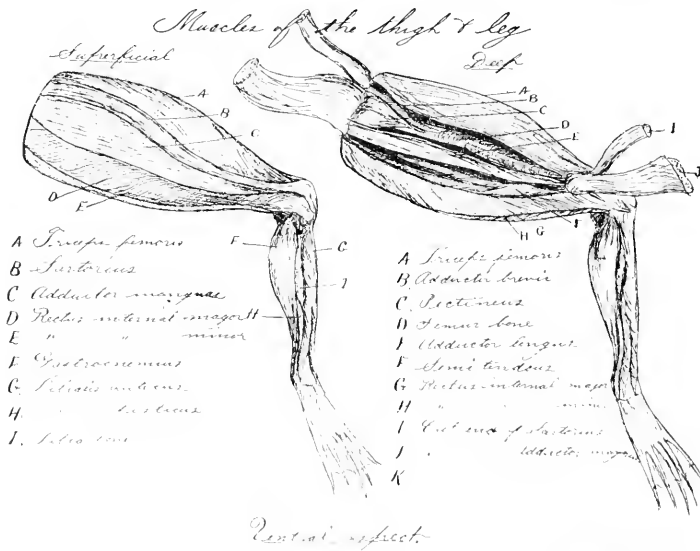 Muscles of the thigh & leg
Superficial
Deep
A
B
C
D
E
F
G
I
H
A Triceps femoris
B Sartorius
C Adductor magnus
D Rectus internal major
E " " minor
F Gastrocnemius
G. Tibialis anticus
H.
I. Tibia bone
A
B
C
D
E
I
J
H
G
A Triceps femoris
B Adductor brevis
C. Pectineus
D Femur bone
Adductor longus
F Semi tendous
G Rectus internal major
H " minor
I Cut end of Sartorius
J " Adductor magnus
K
Ventral aspect.